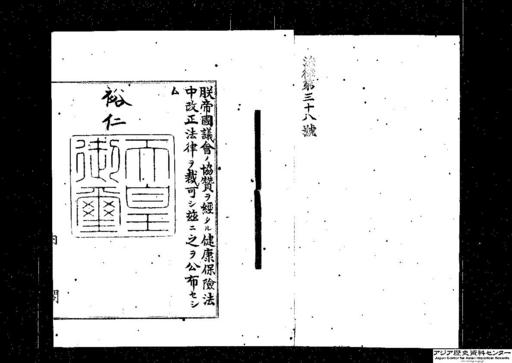 法律第三十八號
朕帝國議會ノ協贊ヲ經タル健康保險法
中改正法律ヲ裁可シ茲ニ之ヲ公布セシ
ム
裕仁
天皇
御璽
内
閣
アジア歴史資料センター
Japan Center for Asian Historical Records